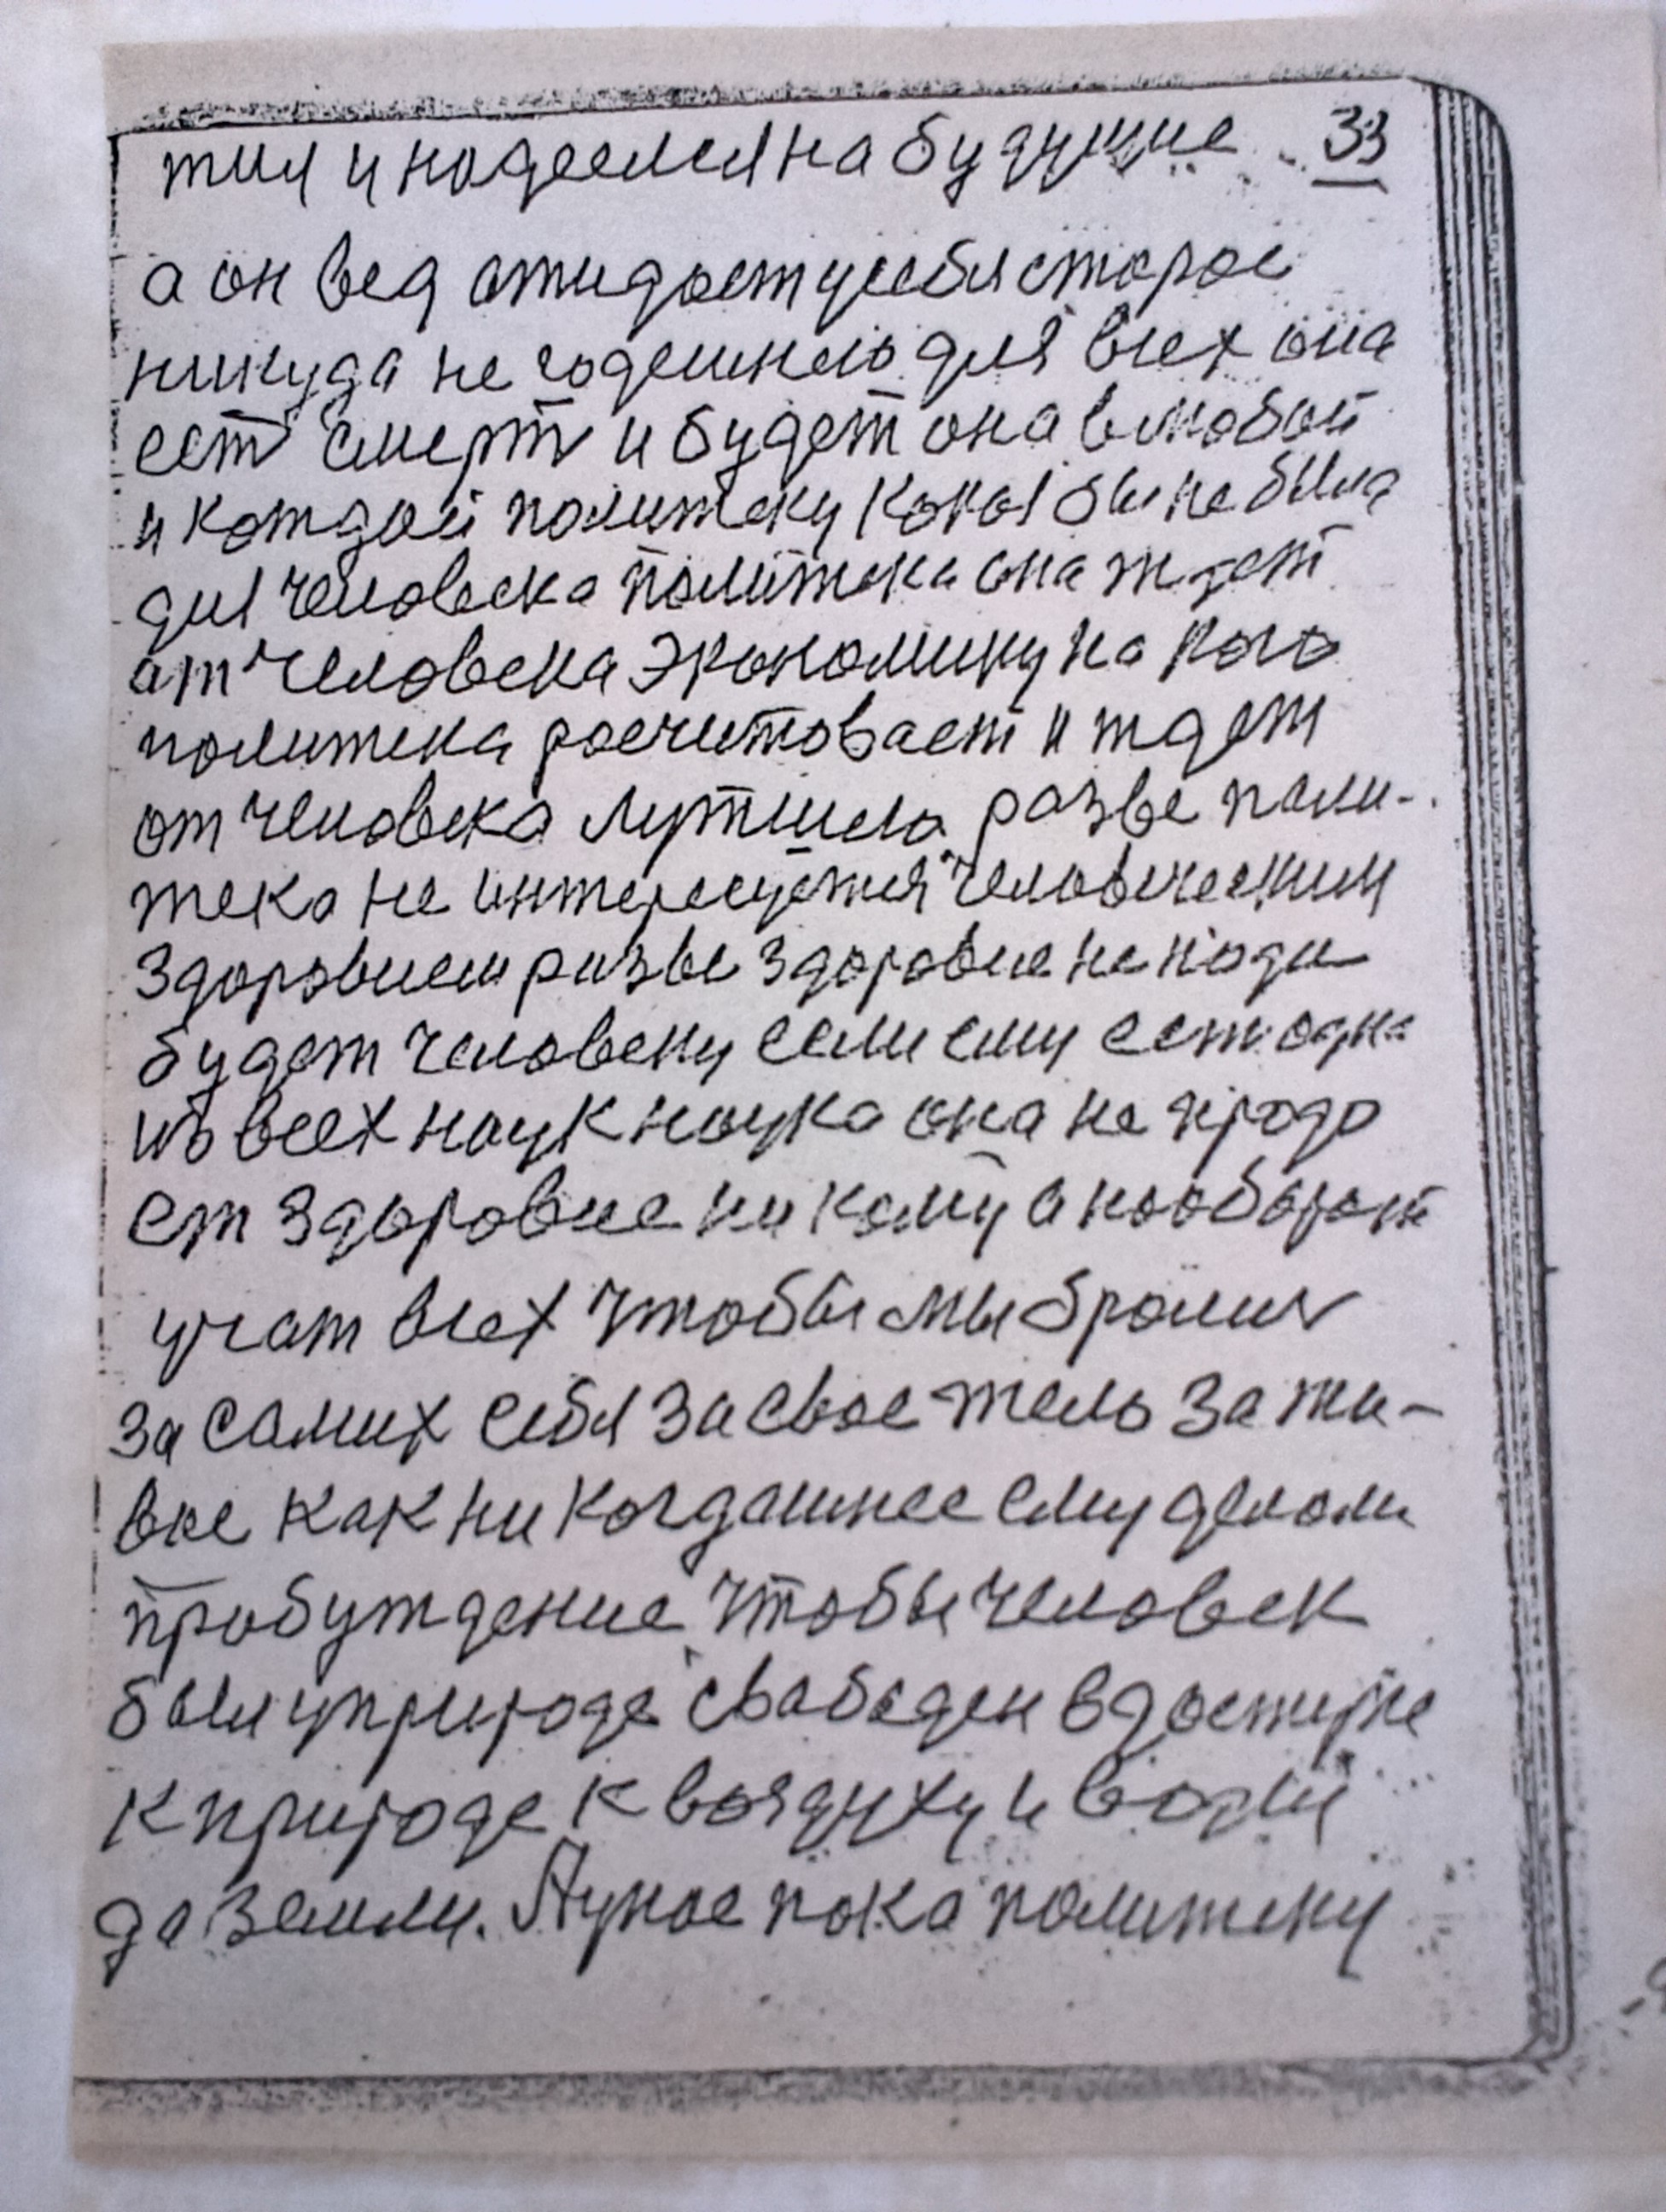 тил и надеелся на будущие 33
а он вед отидает у себя старое
никуда не годешнею для всех она
ест смерт и будет она в любой
и котдой политеку какая бы не была
для человека политека она ждет
ат человека экономику на кого
политека росчитовает и ждет
от человека лутшего разве поли-
тека не интересуется человеческим
здоровием разве здоровие не нада
будет человеку если ему ест одна
из всех наук наука она не прода
ет здоровие ни кому а наоборот
учат всех чтобы мы брались
за самих себя за свое тело за жи-
вое как ни когдашнее ему делали
пробуждение чтобы человек
был у природе свободен в доступе
к природе к воздуху и воды
да земли. Нужное пока политеку